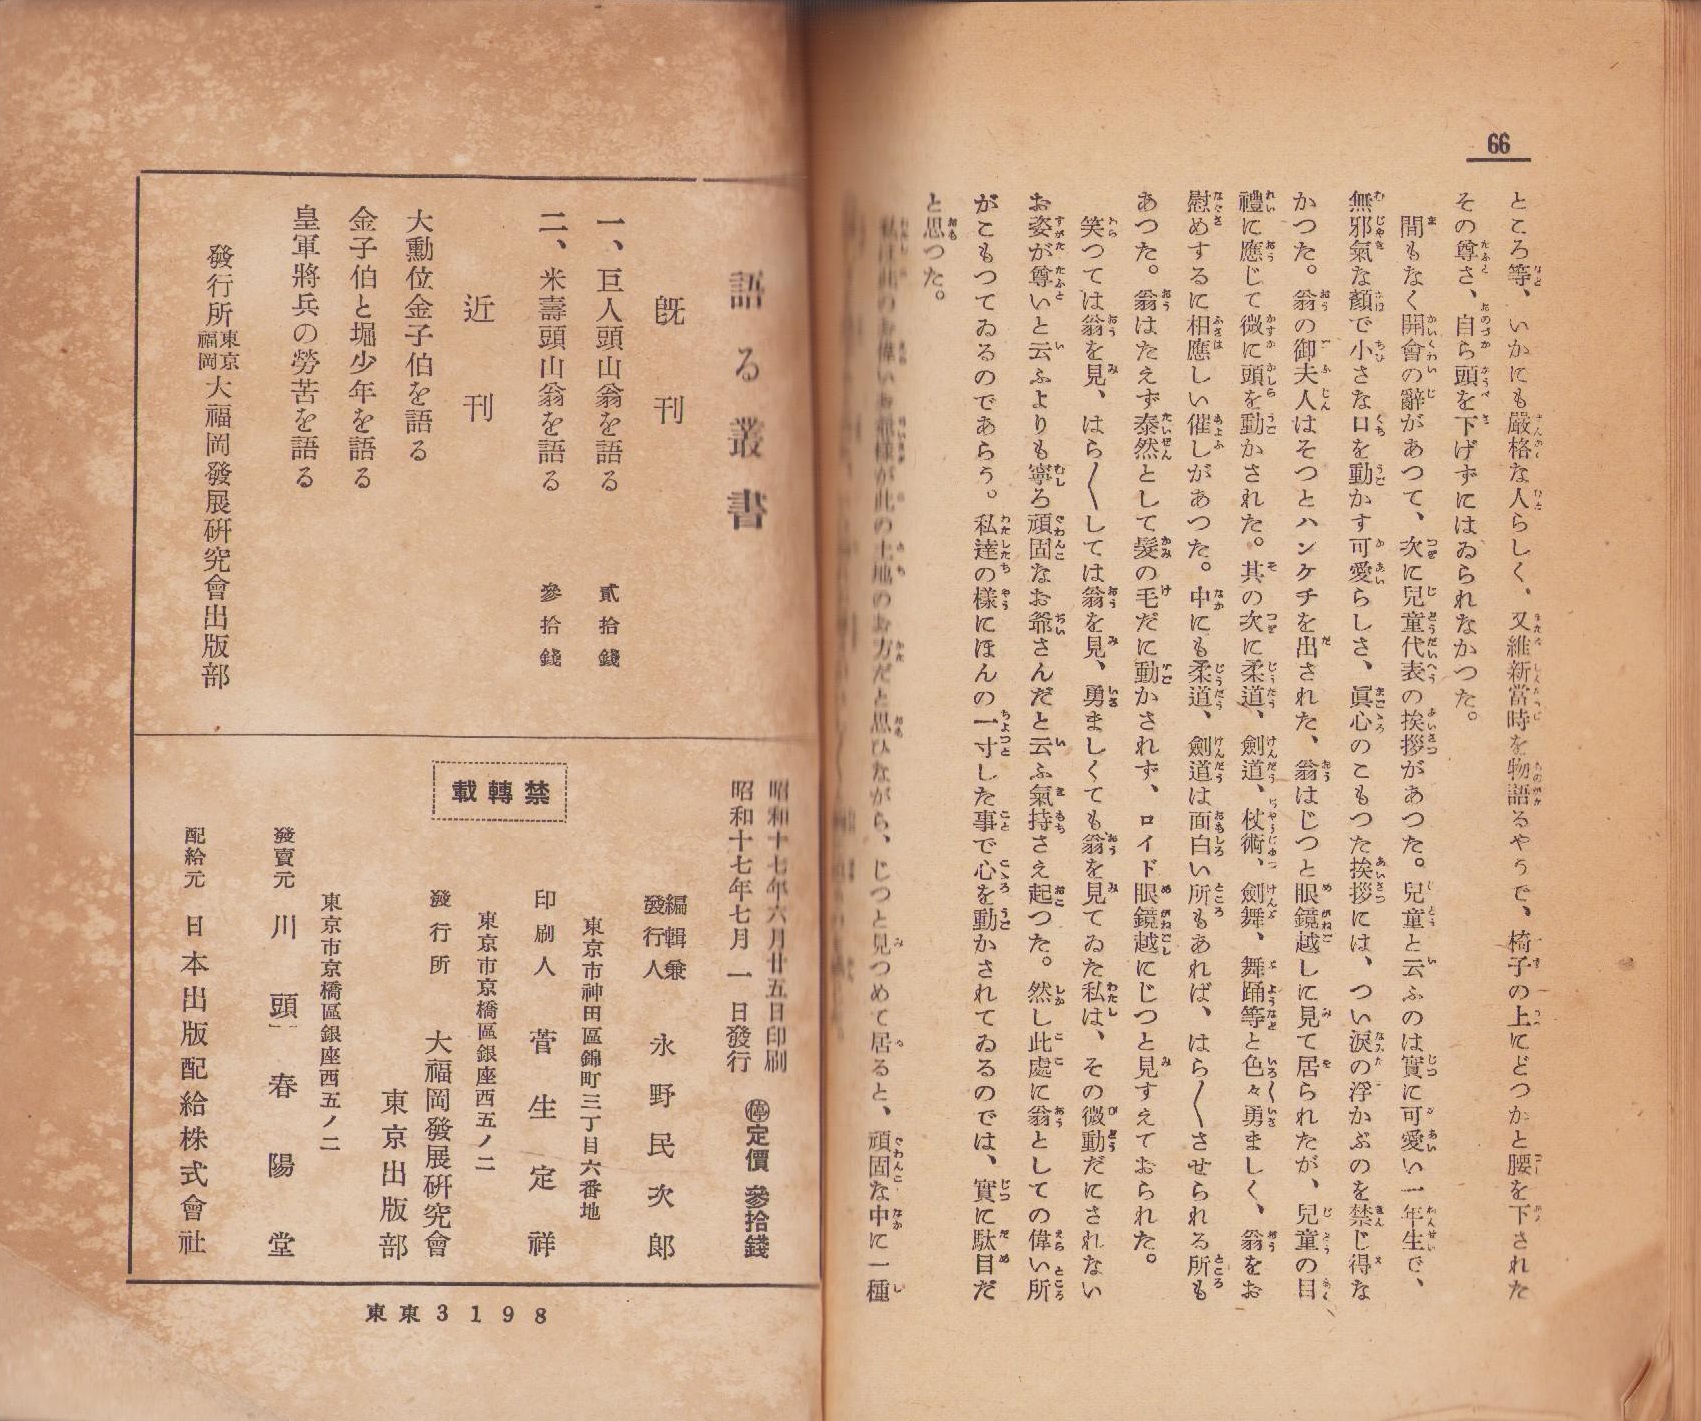 66
ところ等、いかにも嚴格な人らしく、又維新當時を物語るやうで、椅子の上にどつかと腰を下された
その尊さ、自ら頭を下げずにはゐられなかつた。
間もなく開會の辭があつて、次に兒童代表の挨拶があつた。兒童と云ふのは實に可愛い一年生で、
無邪氣な顏で小さな口を動かす可愛らしさ、眞心のこもつた挨拶には、つい淚の浮かぶのを禁じ得な
かつた。翁の御夫人はそつとハンケチを出された、翁はじつと眼鏡越しに見て居られたが、兒童の目
禮に應じて微に頭を動かされた。其の次に柔道、劍道、杖術、劍舞、舞踊等と色々勇ましく、翁をお
慰めするに相應しい催しがあつた。中にも柔道、劍道は面白い所もあれば、はら〱させられる所も
あつた。翁はたえず泰然として髮の毛だに動かされず、ロイド眼鏡越にじつと見すえておられた。
笑つては翁を見、はら〱しては翁を見、勇ましくても翁を見てゐた私は、その微動だにされない
お姿が尊いと云ふよりも寧ろ頑固なお爺さんだと云ふ氣持さえ起つた。然し此處に翁としての偉い所
がこもつてゐるのであらう。私達の樣にほんの一寸した事で心を動かされてゐるのでは、實に駄目だ
と思つた。
私は此のお偉いお爺樣が此の土地のお方だと思ひながら、じつと見つめて居ると、頑固な中に一種
語る叢書
既刊
一、巨人頭山翁を語る 貳拾錢
二、米壽頭山翁を語る 參拾錢
近刊
大勳位金子伯を語る
金子伯と堀少年を語る
皇軍將兵の勞苦を語る
發行所 東京 福岡 大福岡發展硏究會出版部
昭和十七年六月廿五日印刷
昭和十七年七月一日發行
㊡定價 參拾錢
編輯兼
發行人 永野民次郎
東京市神田區錦町三丁目六番地
印刷人 菅生定祥
東京市京橋區銀座西五ノ二
發行所 大福岡發展硏究會
東京出版部
禁轉載
東京市京橋區銀座西五ノ二
發賣元 川頭春陽堂
配給元 日本出版配給株式會社
東東3198